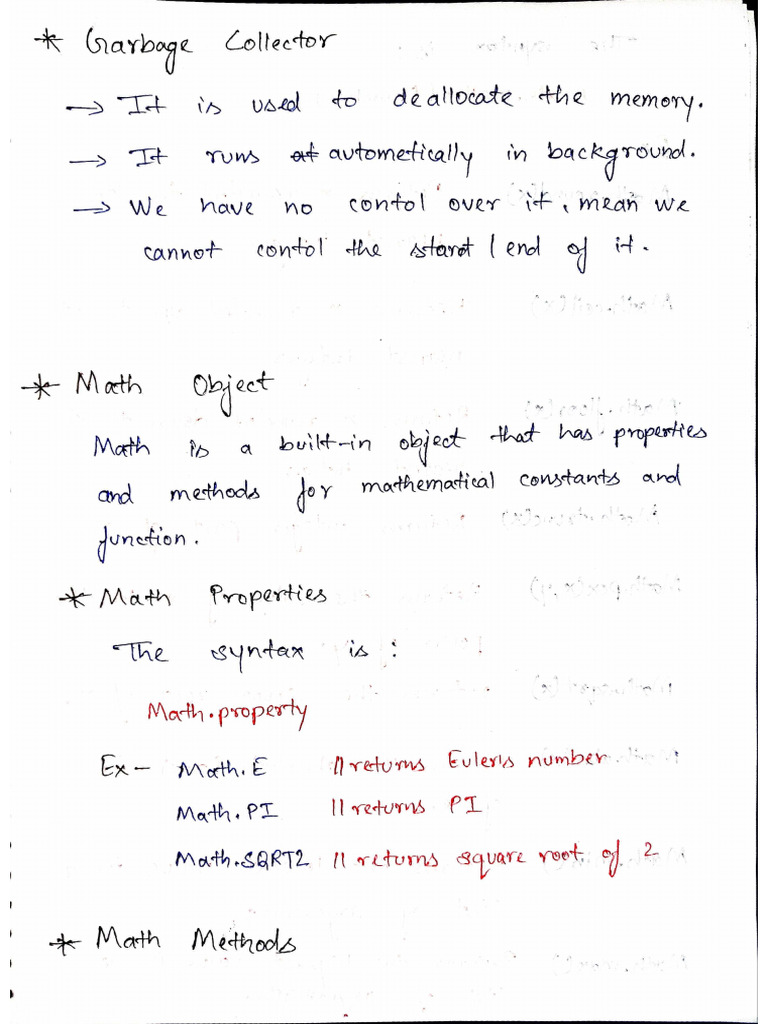 * Garbage Collector
→ It is used to deallocate the memory.
→ It runs at autometically in background.
→ We have no contol over it, mean we
cannot contol the start / end of it.
* Math Object
Math is a built-in object that has properties
and methods for mathematical constants and
function.
* Math Properties
The syntax is :
Math.property
Ex - Math.E // returns Euler's number
Math.PI // returns PI
Math.SQRT2 // returns square root of 2
* Math Methods